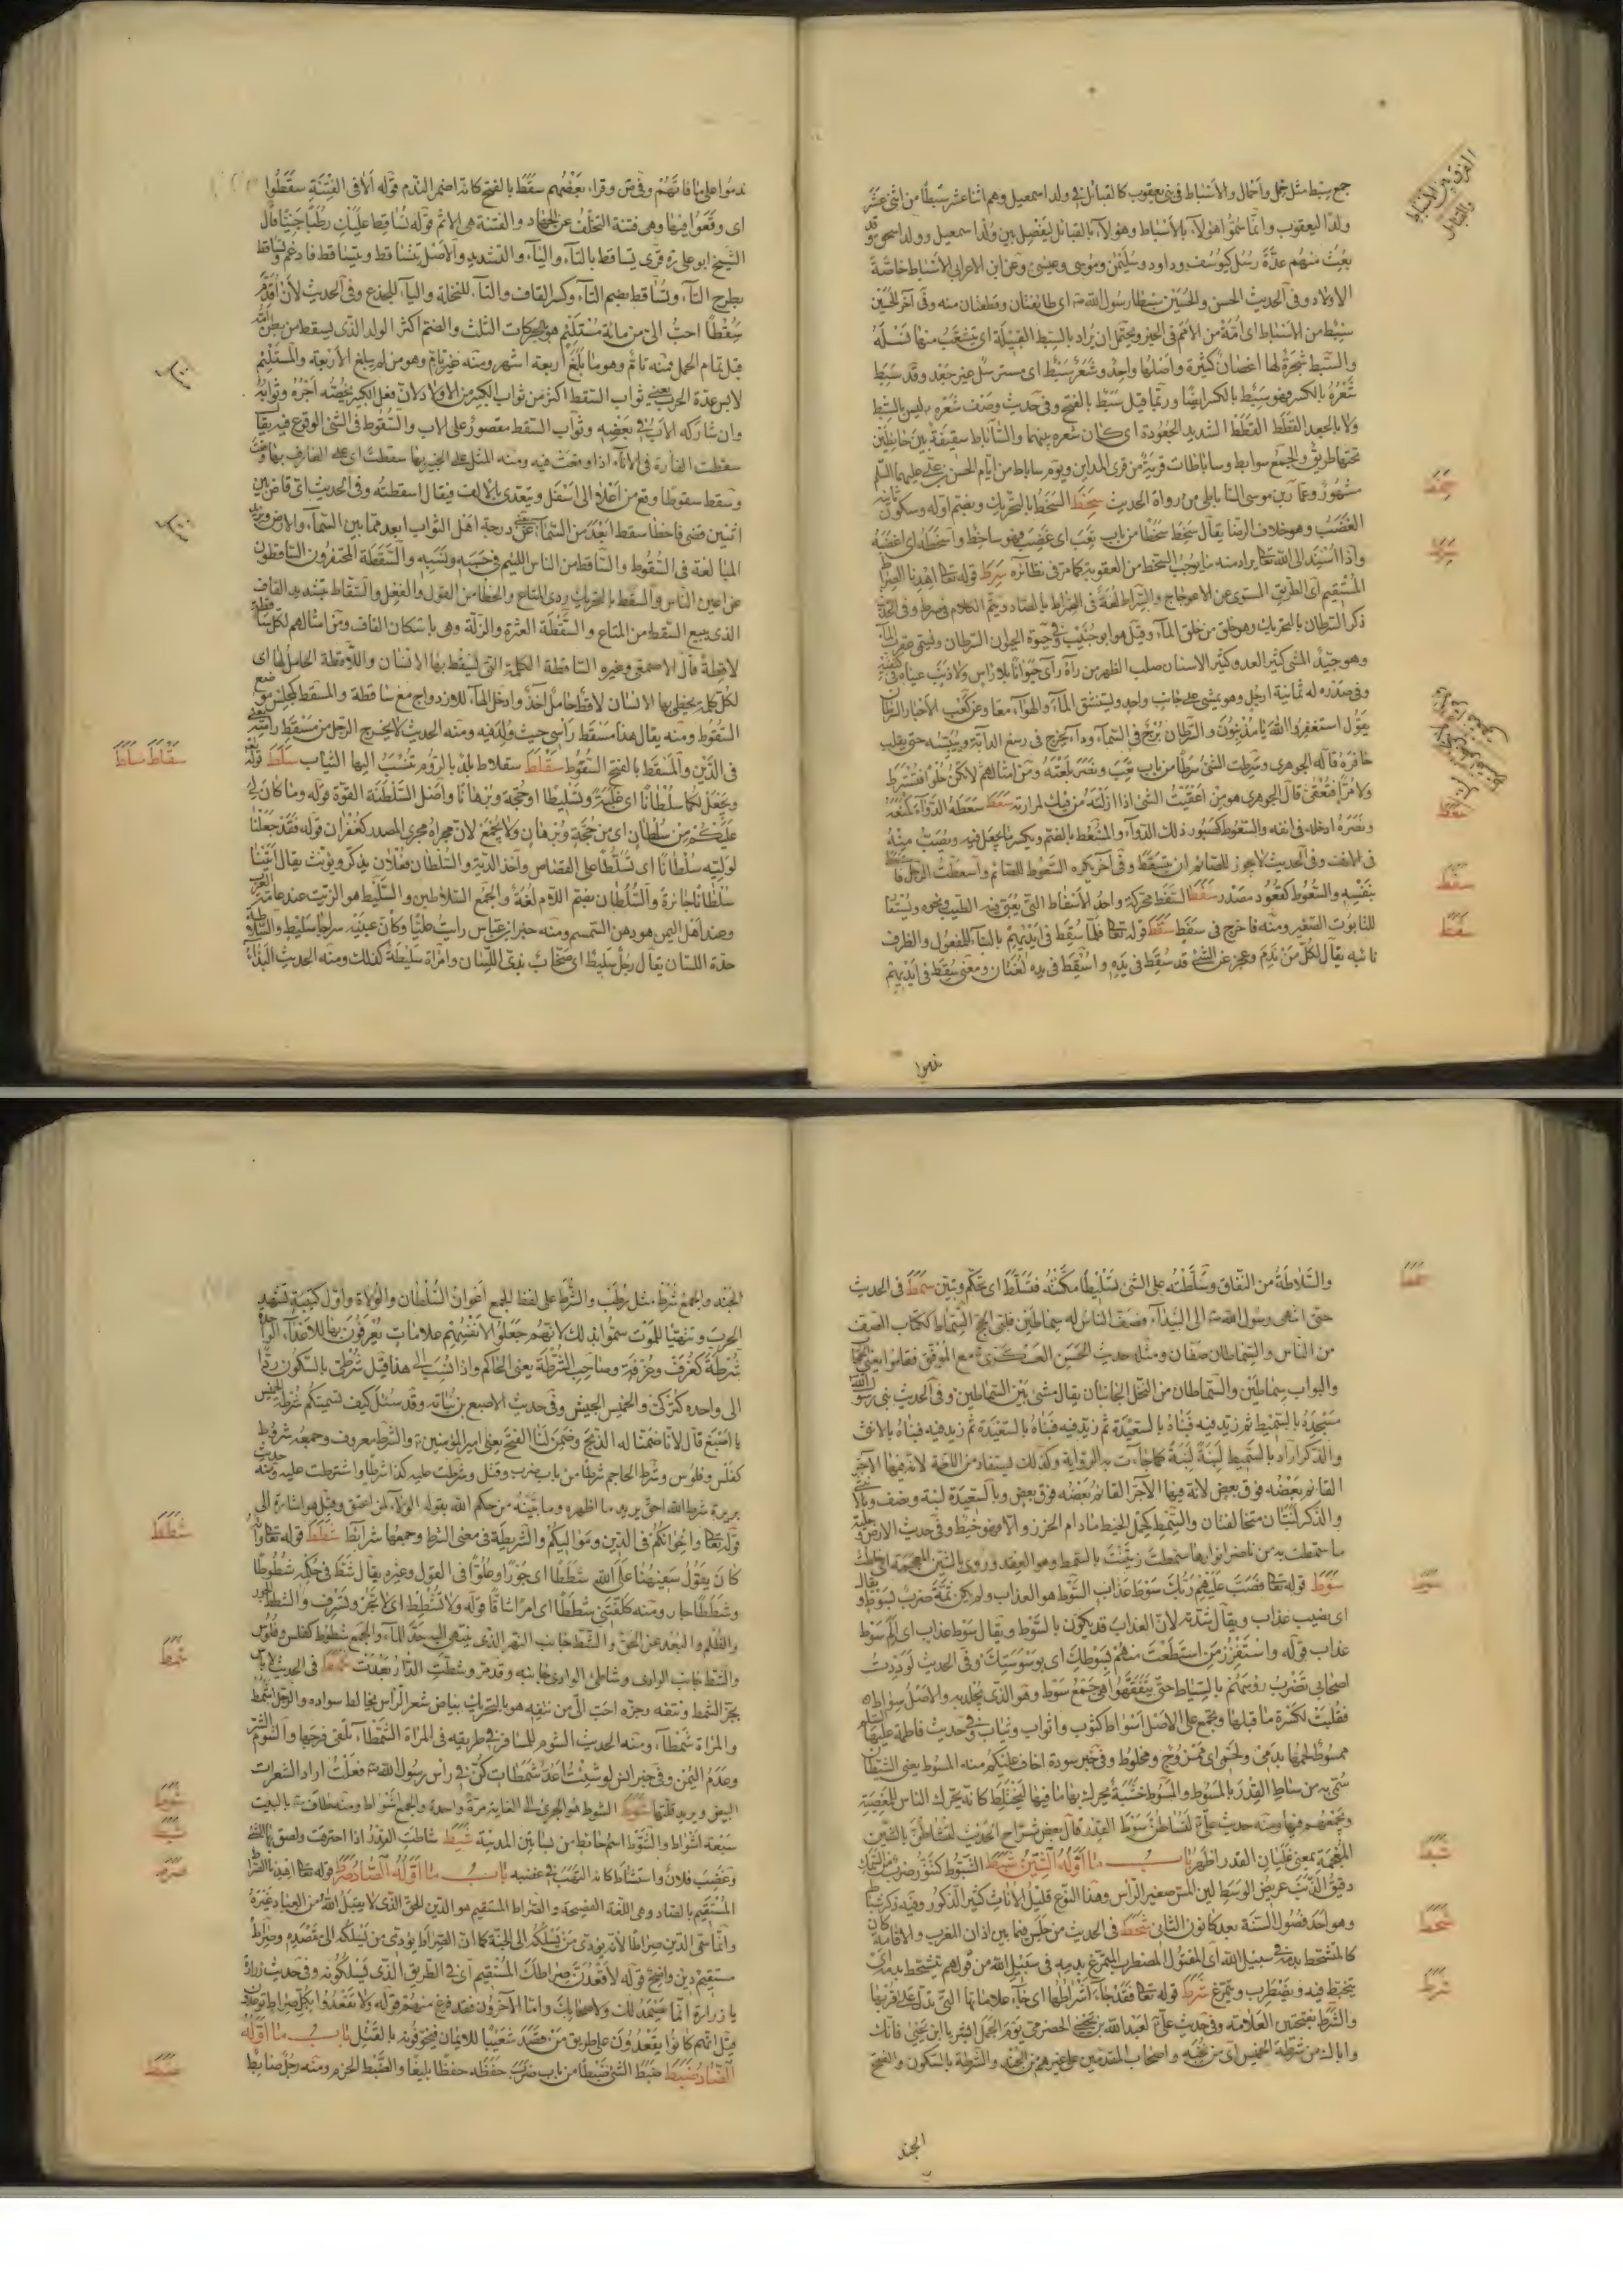 جمع سبط مثل حمل واحمال والاسباط فى بنى يعقوب كالقبائل فى ولد اسمعيل وهم اثنا عشر سبطا من اثنى عشر
ولدا ليعقوب وانما سموا هؤلاء بالاسباط وهؤلاء بالقبائل ليفصل بين ولد اسمعيل وولد اسحق وقد
بعث منهم عدة رسل كيوسف وداود وسليمن وموسى وعيسى وعن ابن الاعرابى الاسباط خاصة
الاولاد وفى الحديث الحسن والحسين سبطا رسول الله ص اى طائفتان وقطعتان منه وفى آخر الحسين
سبط من الاسباط اى امة من الامم فى الخير ويحتمل ان يراد بالسبط القبيلة اى يتشعب منهما نسله
والسبط شجرة لها اغصان كثيرة واصلها واحد وشعر سبط اى مسترسل غير جعد وقد سبط
شعره بالكسر فهو سبط بالكسر ايضا وربما قيل سبط بالفتح وفى حديث وصف شعره ليس بالسبط
ولا بالجعد القطط القطط الشديد الجعودة اى كان شعره بينهما والساباط سقيفة بين حائطين
تحتها طريق والجمع سوابيط وساباطات قرية من قرى المداين ويوم ساباط من ايام الحسن بن على عليهما السلم
مشهور وعمار بن موسى الساباطى من رواة الحديث سخط السخط بالتحريك وبضم اوله وسكون ثانيه
الغضب وهو خلاف الرضا يقال سخط سخطا من باب تعب اى غضب فهو ساخط واسخطه اى اغضبه
واذا اسند الى الله تعا يراد منه ما يوجب السخط من العقوبة كما مر فى نظائره سرط قوله تعا اهدنا الصراط
المستقيم اى الطريق المستوى عن الاعوجاج والسراط لغة فى الصراط بالصاد ويتم الكلام فى صرط وفى الحديث
ذكر السرطان بالتحريك وهو خلق من خلق الماء وقيل هو ابو جنيب فى حيوة الحيوان السرطان ويسمى عقرب الماء
وهو جيد المشى كثير العدو كثير الاسنان صلب الظهر من رآه رأى حيوانا بلا راس ولا ذنب عيناه فى كتفيه
وفى صدره له ثمانية ارجل وهو يمشى على جانب واحد ويستنشق الماء والهواء معا وعن كعب الاحبار السرطان
يقول استغفروا الله يا مذنبون والسرطان برج فى السماء وداء يخرج فى رسغ الدابة وييبسه حتى يقلب
حافره قاله الجوهرى وسرطت الشئ سرطا من باب تعب ونصر بلعته ومن امثالهم لا تكن حلوا فتسترط
ولا مرا فتعقى قال الجوهرى هو من اعقيت الشئ اذا ازلته من فيك لمرارته سعط سعطه الدواء كمنعه
ونصره ادخله فى انفه والسعوط كصبور ذلك الدواء والمسعط بالضم ويكسر ما يجعل فيه ويصب منه
فى الانف وفى الحديث لا يجوز للصائم ان يتسعط وفى آخر يكره السعوط للصائم واسعطت الرجل
بنفسه والسعوط كقعود مصدر سفط السفط محركة واحد الاسفاط التى يعبى فيه الطيب ونحوه ويستعا
للتابوت الصغير ومنه فاخرج فى سفط سقط قوله تعا فلما سقط فى ايديهم بالبناء للمفعول والظرف
نائبه يقال لكل من ندم وعجز عن الشئ قد سقط فى يده واسقط فى يده لغتان ومعنى سقط فى ايديهم
الفرق بين الاسباط
والقبائل
سخط
سرط
سعط
سفط
سقط
ندموا
ندموا على ما فاتهم وفى ض وقراء بعضهم سقط بالفتح كانه اضمر الندم قوله الا فى الفتنة سقطوا
اى وقعوا فيها وهى فتنة التخلف عن الجهاد والفتنة هى الاثم قوله تساقط عليك رطبا جنيا قال
الشيخ ابو على ره قرى يساقط بالتاء والياء والتشديد والاصل تتساقط ويتساقط فادغم وتساقط
بطرح التاء وتساقط بضم التاء وكسر القاف والتاء للنخلة والياء للجذع وفى الحديث لان اقدم
سقطا احب الى من مائة مستلئم هو بالحركات الثلث والضم اكثر الولد الذى يسقط من بطن امه
قبل تمام الحمل فمنه تام وهو ما بلغ اربعة اشهر ومنه غير تام وهو من لم يبلغ الاربعة والمستلئم
لابس عدة الحرب يعنى ثواب السقط اكثر من ثواب الكبير من الاولاد لان فعل الكبير يخصه اجره وثوابه
وان شاركه الاب فى بعضه وثواب السقط مقصور على الاب والسقوط فى الشئ الوقوع فيه يقا
سقطت الفارة فى الاناء اذا وقعت فيه ومنه المثل على الخبير بها سقطت اى على العارف بها وقعت
وسقط سقوطا وقع من اعلا الى اسفل ويتعدى بالالف فيقال اسقطته وفى الحديث اى قاض بين
اثنين قضى فاخطا سقط ابعد من السماء يعنى عن درجة اهل الثواب ابعد مما بين السماء والارض ويريد
المبالغة فى السقوط والساقط من الناس اللئيم فى حسبه ونسبه والسقطة المحتقرون الساقطون
عن اعين الناس والسقط بالتحريك ردى المتاع والخطا من القول والفعل والسقاط بتشديد القاف
الذى يبيع السقط من المتاع والسقطة العثرة والزلة وهى باسكان القاف ومن امثالهم لكل ساقطة
لاقطة قال الاصمعى وغيره الساقطة الكلمة التى يسقط بها الانسان واللاقطة الحامل لها اى
لكل كلمة يخطى بها الانسان لاقط حامل آخذ وادخل الهاء للازدواج مع ساقطة والمسقط كمجلس موضع
السقوط ومنه يقال هذا مسقط راسى حيث ولد فيه ومنه الحديث لا يخرج الرجل من مسقط راسه يعنى
فى الدين والمسقط بالفتح السقوط سقلط سقلاط بلد بالروم تنسب اليها الثياب سلط قوله تعا
ويجعل لكما سلطانا اى غلبة وتسليطا او حجة وبرهانا واصل السلطنة القوة قوله وما كان لى
عليكم من سلطان اى من حجة وبرهان ولا يجمع لان مجراه مجرى المصدر كغفران قوله فقد جعلنا
لوليه سلطانا اى تسلطا على القصاص واخذ الدية والسلطان فعلان يذكر ويؤنث يقال اتينا
سلطانا جائرة والسلطان بضم اللام لغة والجمع السلاطين والسليط هو الزيت عند عامة العرب
وعند اهل اليمن هو دهن السمسم ومنه خبر ابن عباس رايت عليا وكأن عينيه سراجا سليط والسلاطة
حدة اللسان يقال رجل سليط اى صخاب بذى اللسان وامراة سليطة كذلك ومنه الحديث البذاء
سقلاط سلط
والسلاطة من النفاق وسلطته على الشئ تسليطا مكنته فتسلط اى تحكم وتبين سمط فى الحديث
حتى انتهى رسول الله ص الى البيداء وصف الناس له سماطين فلبى بالحج السماط ككتاب الصف
من الناس والسماطان صفان ومثله حديث الحسن العسكرى ع مع الموفق فقاموا يعنى
والبواب سماطين والسماطان من النخل الجانبان يقال مشى بين السماطين وفى الحديث بنى رسول الله
مسجده بالسميط ثم زيد فيه فبناه بالسعيدة ثم زيد فيه فبناه بالسعيدة ثم زيد فيه فبناه بالانثى
والذكر اراد بالسميط لبنة لبنة كما جاءت به الرواية وكذلك يستفاد من اللغة لانه فيها الاجر
القائم بعضه فوق بعض لانه فيها الآجر القائم بعضه فوق بعض وبالسعيدة لبنة ونصف وبالانثى
والذكر لبنتان متخالفتان والسمط كحمل الخيط ما دام الخرز والا فهو خيط وفى حديث الارض وحلية
ما سمطت به من ناضر انوارها سمطت زينت بالسمط وهو العقد وروى بالشين المعجمة اى خلطت
سوط قوله تعا فصب عليهم ربك سوط عذاب السوط هو العذاب ولم يكن ثمة ضرب بسوط ويقال
اى نصيب عذاب ويقال شدته لان العذاب قد يكون بالسوط ويقال سوط عذاب اى الم سوط
عذاب قوله واستفزز من استطعت منهم بسوطك اى بوسوستك وفى الحديث لوددت
اصحابى تضرب رؤسهم بالسياط حتى يتفقهوا هى جمع سوط وهو الذى يجلد به والاصل سواط
فقلبت لكسرة ما قبلها ويجمع على الاصل اسواط كثوب واثواب وثياب وفى حديث فاطمة عليها السلم
مسوط لحمها بدمى ولحمى اى ممزوج ومخلوط وفى خبر سودة اخاف عليكم منه المسوط يعنى الشيطان
سمى به من ساط القدر بالمسوط والمسوط خشبة يحرك بها ما فيها ليختلط كانه يحرك الناس للمعصية
ويجمعهم فيها ومنه حديث على ع لتساطن سوط القدر قال بعض شراح الحديث لتشاطن بالشين
المعجمة بمعنى غليان القدر اظهر باب ما اوله الشين شبط الشبوط كتنور ضرب من السمك
دقيق الذنب عريض الوسط لين المس صغير الراس وهذا النوع قليل الاناث كثير الذكور وفيه ذكر شباط
وهو احد فصول السنة بعد كانون الثانى شحط فى الحديث من جلس فيما بين اذان المغرب والاقامة كان
كالمتشحط بدمه فى سبيل الله اى المقتول المضطرب المتمرغ بدمه فى سبيل الله من قولهم يتشحط بدمه اى
يتخبط فيه ويضطرب ويتمرغ شرط قوله تعا فقد جاء اشراطها اى جاء علاماتها التى تدل على قربها
والشرط بفتحتين العلامة وفى حديث على ع لعبد الله بن يحيى الحضرمى يوم الجمل ابشر يا ابن يحيى فانك
واباك من شرطة الخميس اى من نخبه واصحاب المقدمين على غيرهم من الجند والشرطة بالسكون والفتح
سمط
سوط
شبط
شحط
شرط
الجند
الجند والجمع شرط مثل رطب والشرط على لفظ الجمع اعوان السلطان والولاة واول كتيبة تشهد
الحرب وتتهيا للموت سموا بذلك لانهم جعلوا لانفسهم علامات يعرفون بها للاعداء الواحد
شرطة كغرف وغرفة وصاحب الشرطة يعنى الحاكم واذا نسب الى هذا قيل شرطى بالسكون ردا
الى واحده كتركى والخميس الجيش وفى حديث الاصبغ بن نباتة وقد سئل كيف تسميتكم شرطة الخميس
يا اصبغ قال لانا ضمنا له الذبح وضمن لنا الفتح يعنى امير المؤمنين ع والشرط معروف وجمعه شروط
كفلس وفلوس وشرط الحاجم شرطا من باب ضرب وقتل وشرطت عليه كذا شرطا واشترطت عليه ومنه حديث
بريرة شرط الله احق يريد ما اظهره وما بينه من حكم الله بقوله الولاء لمن اعتق وقيل هو اشارة الى
قوله تعا واخوانكم فى الدين ومواليكم والشريطة فى معنى الشرط وجمعها شرائط شطط قوله تعا وانه
كان يقول سفيهنا على الله شططا اى جورا وعلوا فى القول وغيره يقال شط فى حكمه شطوطا
وشططا جار ومنه كلفتنى شططا اى امرا شاقا قوله ولا تشطط اى لا تجر وتسرف والشطط الجور
والظلم والبعد عن الحق والشط جانب النهر الذى ينتهى اليه حد الماء والجمع شطوط كفلس وفلوس
والشط جانب الوادى وشاطئ الوادى جانبه وقد مر وشطت الدار بعدت شمط فى الحديث لا باس
بجز الشمط ونتفه وجزه احب الى من نتفه هو بالتحريك بياض شعر الراس يخالط سواده والرجل اشمط
والمراة شمطاء ومنه الحديث الشوم للمسافر فى طريقه فى المراة الشمطاء تلقى فرجها والشوم الشر
وعدم اليمن وفى خبر انس لو شئت اعد شمطات كن فى راس رسول الله ص فعلت اراد الشعرات
البيض ويريد قلتها شوط الشوط هو الجرى الى الغاية مرة واحدة والجمع اشواط ومنه طاف ع بالبيت
سبعة اشواط والشوط اسم حائط من بساتين المدينة شيط شاطت القدر اذا احترقت ولصق بها الشئ
وغضب فلان واستشاط كانه التهب فى غضبه باب ما اوله الصاد صرط قوله تعا اهدنا الصراط
المستقيم بالصاد وهى اللغة الفصيحة والصراط المستقيم هو الدين الحق الذى لا يقبل الله من العباد غيره
وانما سمى الدين صراطا لانه يؤدى من يسلكه الى الجنة كما ان الصراط يؤدى من يسلكه الى مقصده وصراط
مستقيم دين واضح قوله لاقعدن صراطك المستقيم اى فى الطريق الذى يسلكونه وفى حديث زرارة
يا زرارة انما يعتمد لك ولاصحابك واما الآخرون فقد فرغ منهم قوله ولا تقعدوا بكل صراط توعدون
قيل انهم كانوا يقعدون على طريق من قصد شعيبا للايمان فيخوفونه بالقتل باب ما اوله
الضاد ضبط ضبط الشئ ضبطا من باب ضرب حفظه حفظا بليغا والضبط الحزم ومنه رجل ضابط
شطط
شمط
شوط
شيط
صرط
ضبط